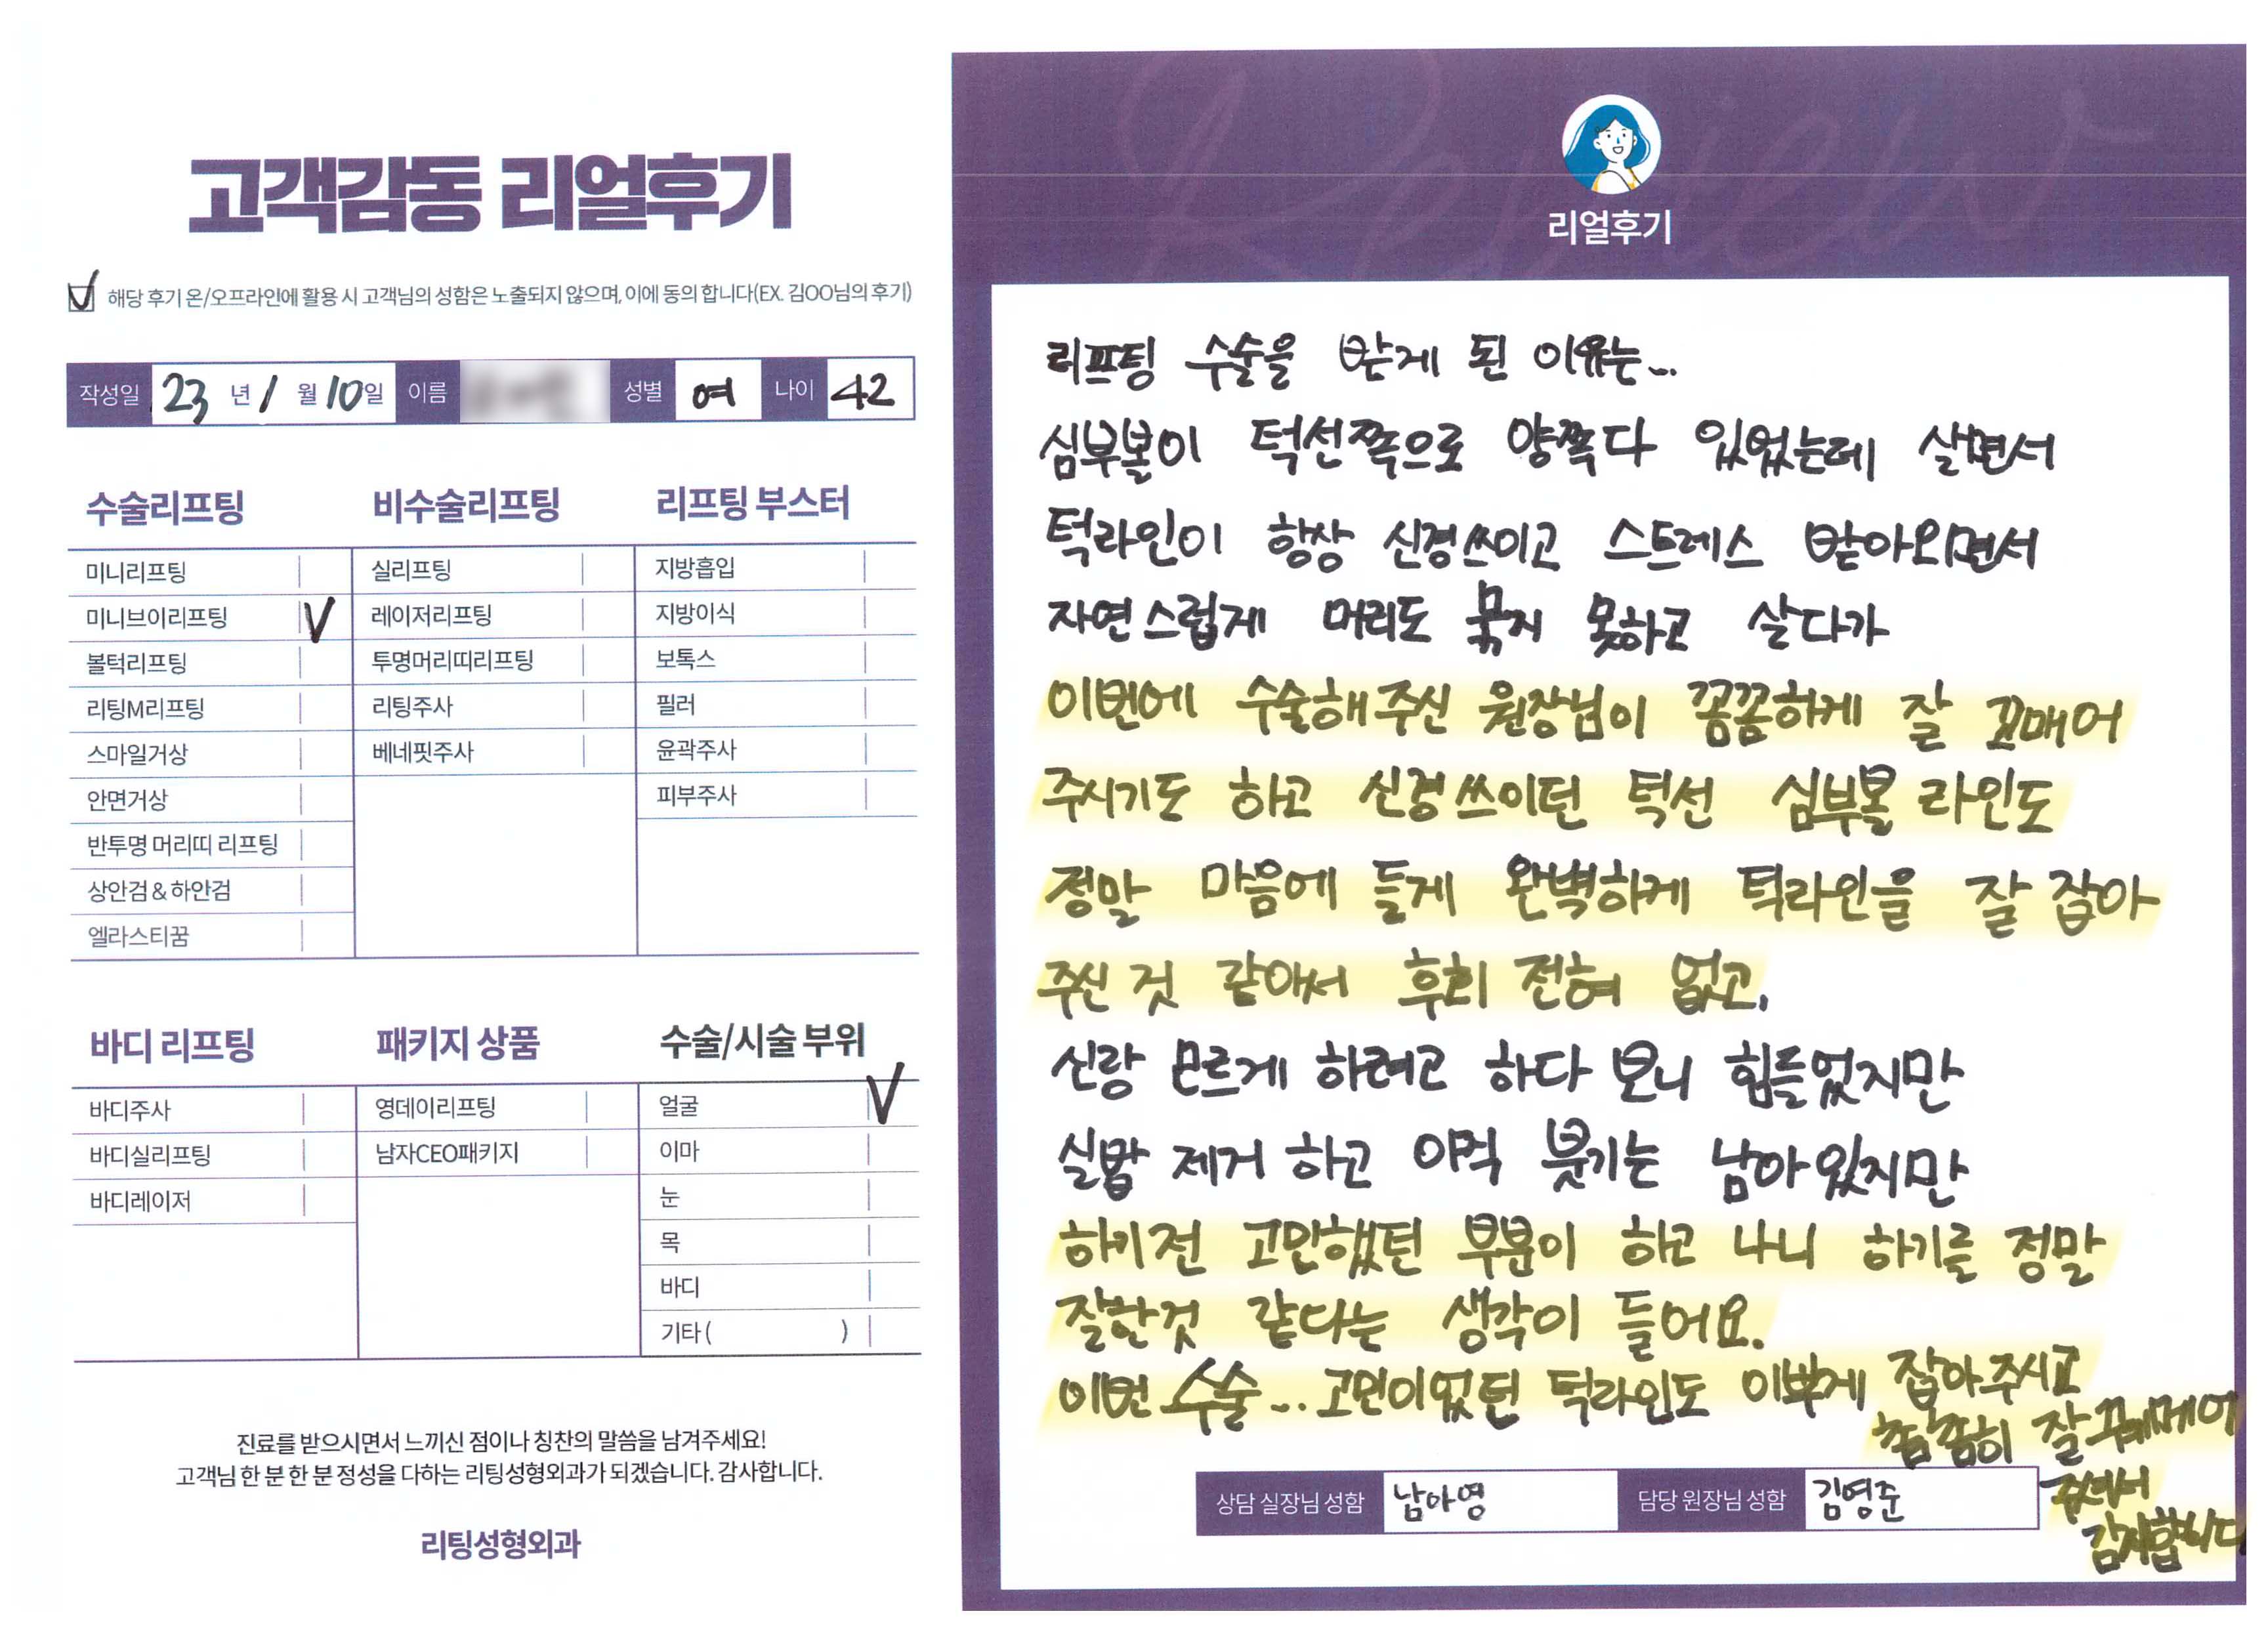 고객감동 리얼후기
해당 후기 온/오프라인에 활용 시 고객님의 성함은 노출되지 않으며, 이에 동의 합니다(EX. 김OO님의 후기)
작성일 23 년 1 월 10일 이름 성별 여 나이 42
수술리프팅
미니리프팅
미니브이리프팅 V
볼턱리프팅
리팅M리프팅
스마일거상
안면거상
반투명 머리띠 리프팅
상안검 & 하안검
엘라스티꿈
비수술리프팅
실리프팅
레이저리프팅
투명머리띠리프팅
리팅주사
베네핏주사
리프팅 부스터
지방흡입
지방이식
보톡스
필러
윤곽주사
피부주사
바디 리프팅
바디주사
바디실리프팅
바디레이저
패키지 상품
영데이리프팅
남자CEO패키지
수술/시술 부위
얼굴 V
이마
눈
목
바디
기타 ( )
진료를 받으시면서 느끼신 점이나 칭찬의 말씀을 남겨주세요!
고객님 한 분 한 분 정성을 다하는 리팅성형외과가 되겠습니다. 감사합니다.
리팅성형외과
Review
리얼후기
리프팅 수술을 받게 된 이유는...
심부볼이 턱선쪽으로 양쪽다 있었는데 살면서
턱라인이 항상 신경쓰이고 스트레스 받아오면서
자연스럽게 머리도 묶지 못하고 살다가
이번에 수술해주신 원장님이 꼼꼼하게 잘 꼬매어
주시기도 하고 신경쓰이던 턱선 심부볼 라인도
정말 마음에 들게 완벽하게 턱라인을 잘 잡아
주신 것 같아서 후회 전혀 없고,
신랑 모르게 하려고 하다 보니 힘들었지만
실밥 제거 하고 아직 붓기는 남아있지만
하기전 고민했던 부분이 하고 나니 하기를 정말
잘한것 같다는 생각이 들어요.
이번 수술... 고민이었던 턱라인도 이쁘게 잡아주시고
꼼꼼히 잘 꿰메어
주셔서
감사합니다
상담 실장님 성함 남아영 담당 원장님 성함 김영준